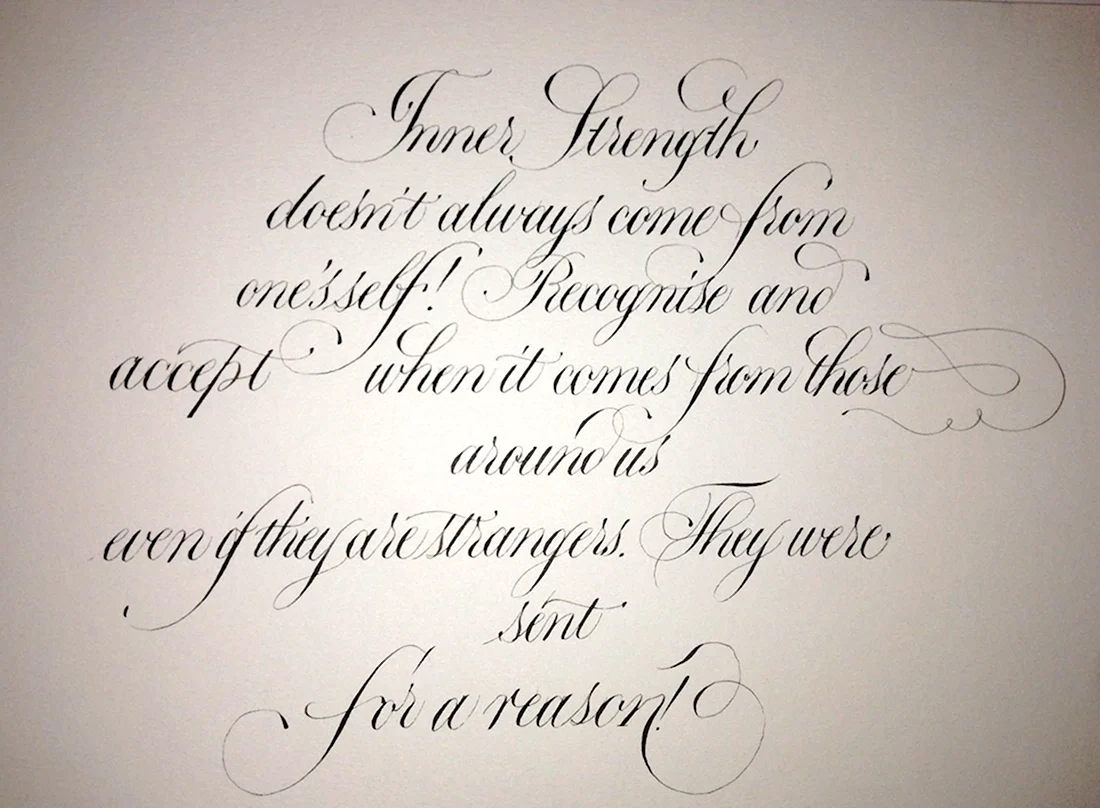 Inner Strength
doesn't always come from
one's self! Recognise and
accept when it comes from those
around us
even if they are strangers. They were
sent
for a reason!